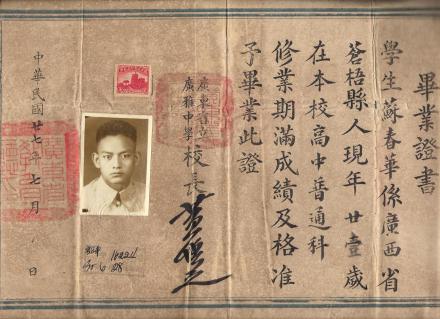 畢業證書
學生蘇春華係廣西省
蒼梧縣人現年廿壹歲
在本校高中普通科
修業期滿成績及格准
予畢業此證
廣東省立
廣雅中學
校長
中華民國廿七年七月 日